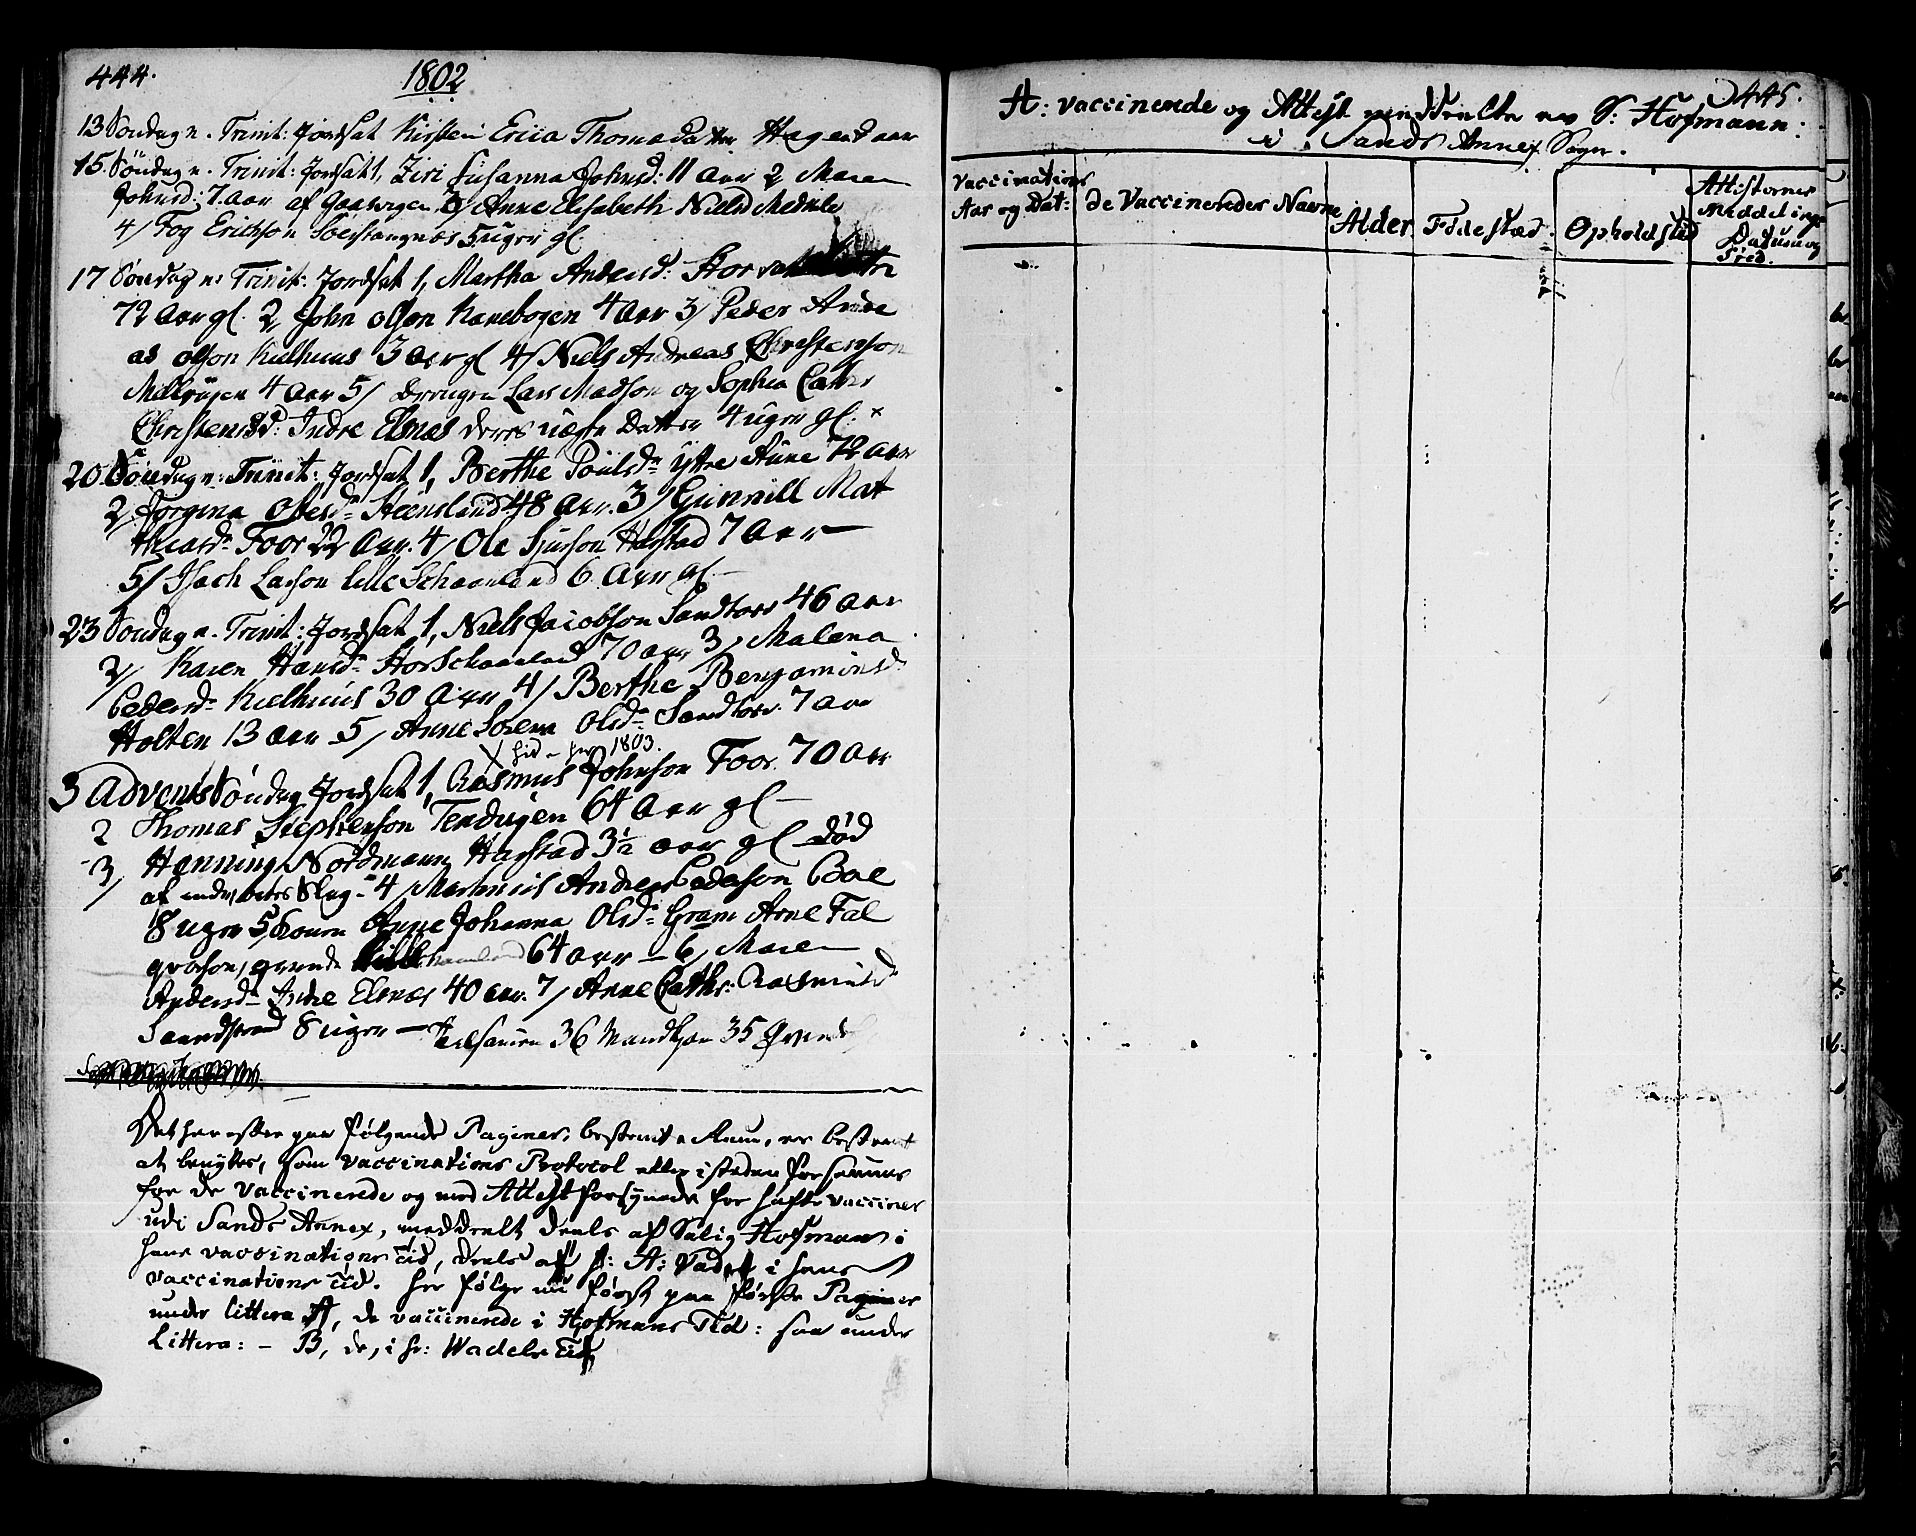 444.
1802
13 Søndag n. Trinit: Jordsat Kirsten Thomadatter
15 Søndag n. Trinit: Jordsat 1, Ziri Susanna Johnsd: 11 aar 2 Maren
Johnsd: 7 aar af Gaarvigen 3/ Anne Elisabeth Niels
4/ Fog Erichson 5 uger gl.
17 Søndag n: Trinit: Jordsat 1, Martha Andersd: Stor
72 aar gl. 2, John Olson Kanebogen 4 aar 3/ Peder Andre
as Olson Kielhuus 3 aar gl 4/ Niels Andreas Christenson
4 aar 5/ Lars Madson og Sophia Cathr
Christensd: Indre Elsnæs deres uægte Datter 4 uger gl. x
20 Søndag n: Trinit: Jordsat 1, Berthe Poulsd: Yttre Aune 72 aar
2, Jorgina Olesd: Steensland 48 aar. 3/ Gunnill Mat
thiasd: Foor 22 aar. 4/ Ole Siurson Harstad 7 aar
5/ Isach Larson lille Schaanland 6 aar gl.
23 Søndag n. Trinit: Jordsat 1, Niels Jacobson Sandtorv 46 aar
2/ Karen Hansd: Stor Schaanland 70 aar 3/ Malena
Pedersd: Kielhuus 30 aar 4/ Berthe Benjaminsd:
Holten 13 aar 5/ Anne Sorena Olsd: Sandtorv. 7 aar
1803.
3 Advents Søndag Jordsat 1, Rasmus Johnson Foor 70 aar
2 Thomas Stephenson 64 aar gl
3/ Henning Nordmann Harstad 3½ aar gl død
af 4/ Martinus Andreas Pederson Boe
18 uger 5/ Konen Anne Johanna Olsd: Gram Arne Fal
qvorson, 64 aar 6/ Maren
Andersd: Indre Elsnæs 40 aar. 7/ Anne Cathr: Rasmusd
Sandstrand 8 uger Tilsamen 36 Mandkjøn 35 Qvinde
Det her efter paa følgende Paginer, bestemte Rum, er bestemt
at benyttes, som Vaccinations Protocol eller isteden for samme
for de Vaccinerede og med Attest forsynede for hafte vacciner
udi Sands Annex, meddeelt deels af Salig Hofmann i
hans vaccinations tid, deels af hr: A: Vadel i hans
vaccinations tid. her følge nu først paa første Paginer
under littera A, de vaccinerede i Hofmans Tid: saa under
Littera: – B, de, i hr: Wadels tid
445.
A: vaccinerede og Attest meddeelte av S: Hofmann
i Sands Annex Sogn.
Vaccinations
Aar og Dat:
de Vaccineredes Navne
Alder
Fødestæd
Opholdstæd
Attesternes
Meddelings
Datum og
Sted.